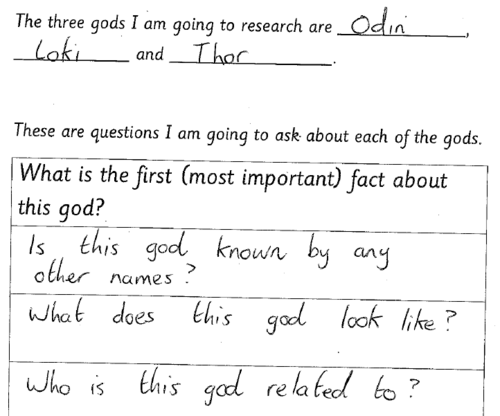 The three gods I am going to research are Odin,
Loki and Thor.
These are questions I am going to ask about each of the gods.
What is the first (most important) fact about
this god?
Is this god known by any
other names?
What does this god look like?
Who is this god related to?